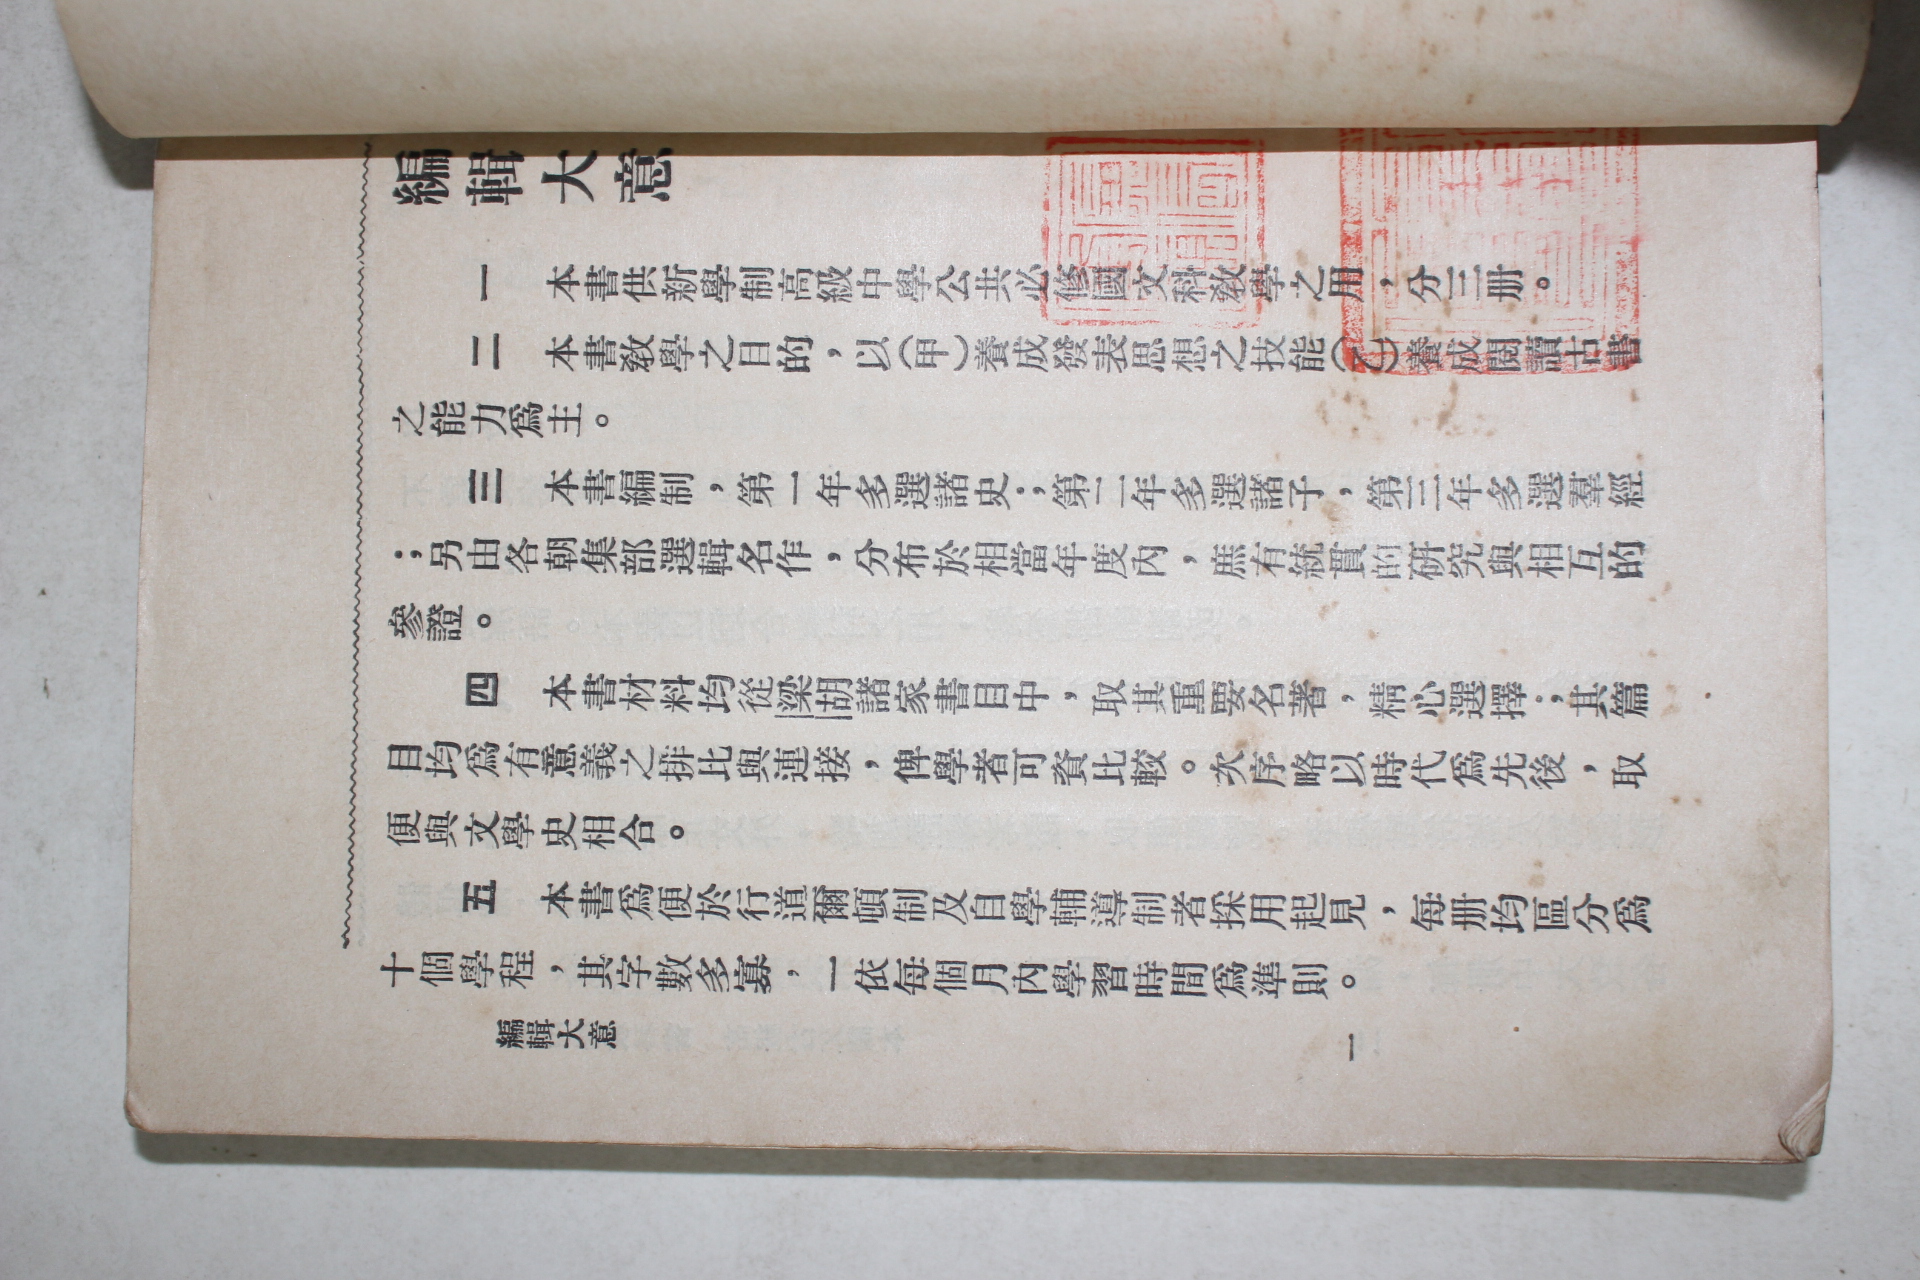 編輯大意
一　本書供新學制高級中學公共必修國文科敎學之用，分三册。
二　本書敎學之目的，以（甲）養成發表思想之技能（乙）養成閱讀古書
之能力爲主。
三　本書編制，第一年多選諸史；第二年多選諸子，第三年多選羣經
；另由各朝集部選輯名作，分布於相當年度內，庶有統貫的硏究與相互的
參證。
四　本書材料均從梁胡諸家書目中，取其重要名著，精心選擇；其篇
目均爲有意義之排比與連接，俾學者可資比較。次序略以時代爲先後，取
便與文學史相合。
五　本書爲便於行道爾頓制及自學輔導制者採用起見，每册均區分爲
十個學程，其字數多寡，一依每個月內學習時間爲準則。
編輯大意　一